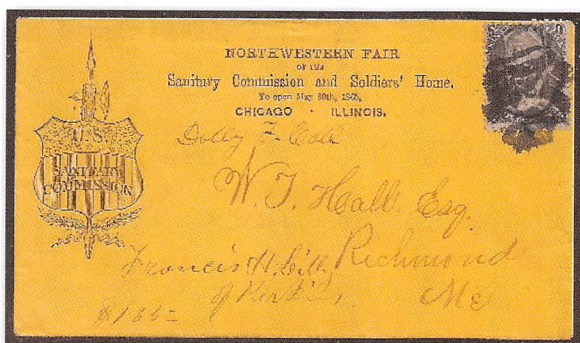 NORTHWESTERN FAIR
OF THE
Sanitary Commission and Soldiers' Home,
To open May 30th, 1865,
CHICAGO · ILLINOIS,
U.S.
SANITARY
COMMISSION
Dolly F.
W. T. Hall Esq.
Richmond
Me
Francis H.
of